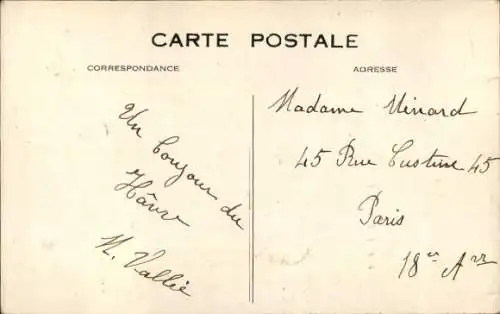 CARTE POSTALE
CORRESPONDANCE
ADRESSE
Un bonjour du
Hâvre
N. Vallée
Madame Ménard
45 Rue Custine 45
Paris
18er Arr